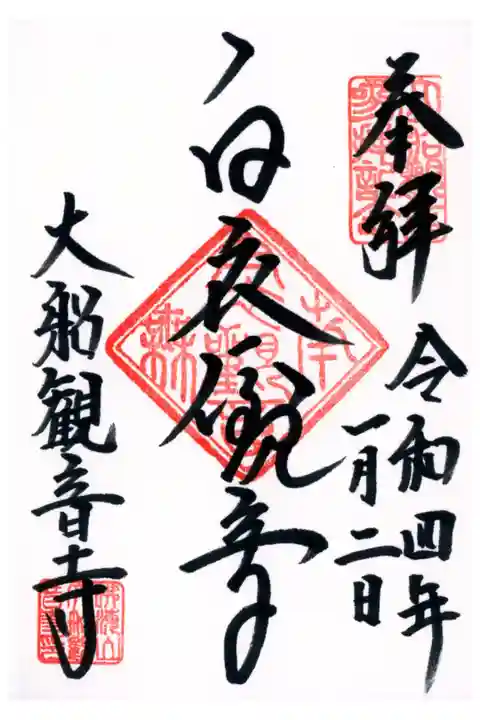 奉拝
令和四年
一月二日
白衣観音
大船観音寺